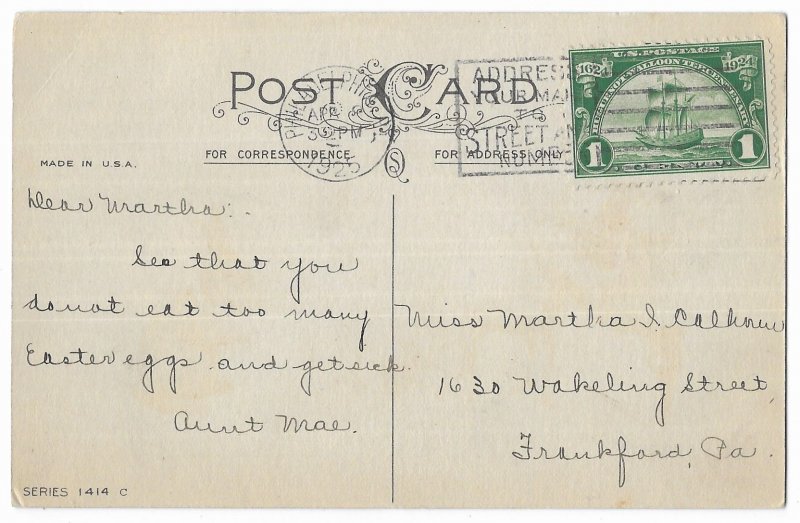 POST CARD
FOR CORRESPONDENCE
FOR ADDRESS ONLY
MADE IN U.S.A.
PHILA. PA.
APR
PM
1925
ADDRESS
YOUR MAIL
TO
STREET AND
NUMBER
U.S. POSTAGE
1624 1924
HUGUENOT-WALLOON TERCENTENARY
1 1
Dear Martha:
See that you
do not eat too many
Easter eggs and get sick.
Aunt Mae.
Miss Martha I. Calhoun
1630 Wakeling Street,
Frankford, Pa.
SERIES 1414 C